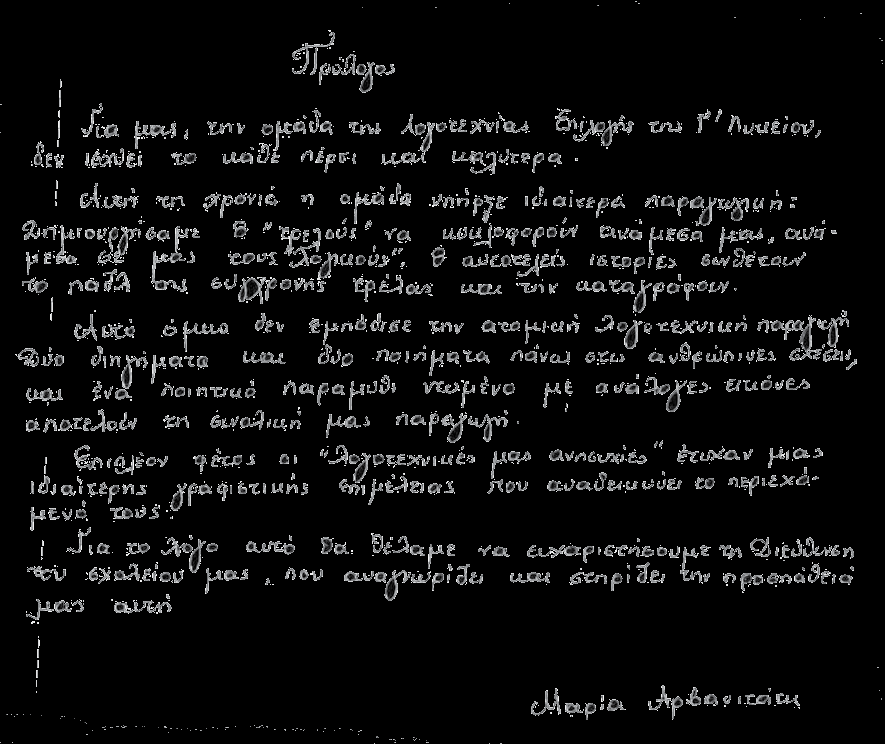 Πρόλογος
Για μας, την ομάδα της Λογοτεχνίας Επιλογής της Γ' Λυκείου,
δεν ισχύει το κάθε πέρσι και καλύτερα.
Αυτή τη χρονιά η ομάδα υπήρξε ιδιαίτερα παραγωγική:
Δημιουργήσαμε 8 "τρελούς" να κυκλοφορούν ανάμεσά μας, ανά-
μεσα σε μας τους "λογικούς". 8 αυτοτελείς ιστορίες συνθέτουν
το παζλ της σύγχρονης τρέλας και την καταγράφουν.
Αυτό όμως δεν εμπόδισε την ατομική λογοτεχνική παραγωγή
Δύο διηγήματα και δύο ποιήματα πάνω στις ανθρώπινες σχέσεις,
και ένα ποιητικό παραμύθι ντυμένο με ανάλογες εικόνες
αποτελούν τη συνολική μας παραγωγή.
Επιπλέον φέτος οι "λογοτεχνικές μας ανησυχίες" έτυχαν μιας
ιδιαίτερης γραφιστικής επιμέλειας που αναδεικνύει το περιεχό-
μενό τους.
Για το λόγο αυτό θα θέλαμε να ευχαριστήσουμε τη Διεύθυνση
του σχολείου μας, που αναγνωρίζει και στηρίζει την προσπάθειά
μας αυτή
Μαρία Αρβανιτάκη